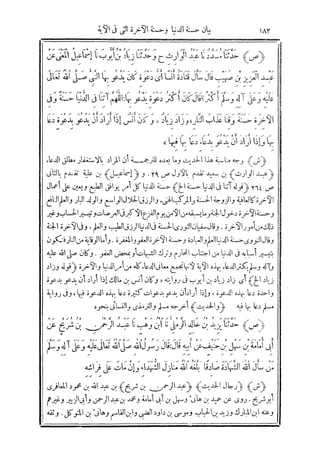 ١٨٢ بيان حسنة الدنيا وحسنة الآخرة التى فى الآية
(ص) حدثنا مسدد نا عبد الوارث ح وحدثنا زياد بن أيوب نا إسماعيل المعنى عن
عبد العزيز بن صهيب قال سأل قتادة أنسا أى دعوة كان يدعو بها النبى صلى الله تعالى
عليه وعلى آله وسلم أكثر؟ قال كان أكثر دعوة يدعو بها: اللهم آتنا فى الدنيا حسنة وفى
الآخرة حسنة وقنا عذاب النار، وزاد زياد: وكان أنس إذا أراد أن يدعو بدعوة دعا
بها وإذا أراد أن يدعو بدعاء دعا بها فيها
(ش) وجه مناسبة هذا الحديث وما بعده للترجمة أن المراد بالاستغفار مطلق الدعاء.
(عبد الوارث) بن سعيد تقدم بالأول ص ٢٩. و(إسماعيل) بن علية تقدم بالثانى
ص ٢٦٤ (قوله آتنا فى الدنيا حسنة الخ) حسنة الدنيا كل أمر يوافق الطبع ويعين على أعمال
الآخرة كالعافية والزوجة الحسنة والمركب الهنى، والرزق الحلال الواسع والولد البار والعلم النافع
وحسنة الآخرة دخول الجنة وما يسبقه من الأمن يوم الفزع الأكبر فى العرصات وتيسير الحساب وغير
ذلك من أمور الآخرة. وقال سفيان الثورى الحسنة فى الدنيا الرزق الطيب والعلم، وفى الآخرة الجنة
وقال النووى حسنة الدنيا العلم والعبادة وحسنة الآخرة العفو والمغفرة. وأما الوقاية من النار فتكون
بتيسير أسبابه فى الدنيا من اجتناب المحارم وترك الشبهات أو بمحض العفو. وكان صلى الله عليه
وآله وسلم يكثر الدعاء بهذه الآية لأنها تجمع معانى الدعاء كله من أمر الدنيا والآخرة (قوله وزاد
زياد الخ) أى زاد زياد بن أيوب فى روايته: وكان أنس بن مالك إذا أراد أن يدعو بدعوة
واحدة دعا بهذه الدعوة، وإذا أراد أن يدعو بدعوات كثيرة دعا بهذه الدعوة فيها، وفى رواية
مسلم دعا بها فيه (والحديث) أخرجه مسلم والترمذى والنسائى بنحوه
(ص) حدثنا يزيد بن خالد الرملى نا ابن وهب نا عبد الرحمن بن شريح عن
أبى أمامة بن سهل بن حنيف عن أبيه قال قال رسول الله صلى الله تعالى عليه وعلى آله وسلم
من سأل الله الشهادة صادقا بلغه الله منازل الشهداء وإن مات على فراشه
(ش) (رجال الحديث) (عبد الرحمن بن شريح) بن عبد الله بن محمود المعافرى
أبو شريح. روى عن حميد بن هانئ وسهل بن أبى أمامة ومحمد بن عبد الرحمن وأبى الزبير وغيرهم
وعنه ابن المبارك وزيد بن الحباب وموسى بن داود الضبى وابن القاسم وهانئ بن المتوكل. وثقه